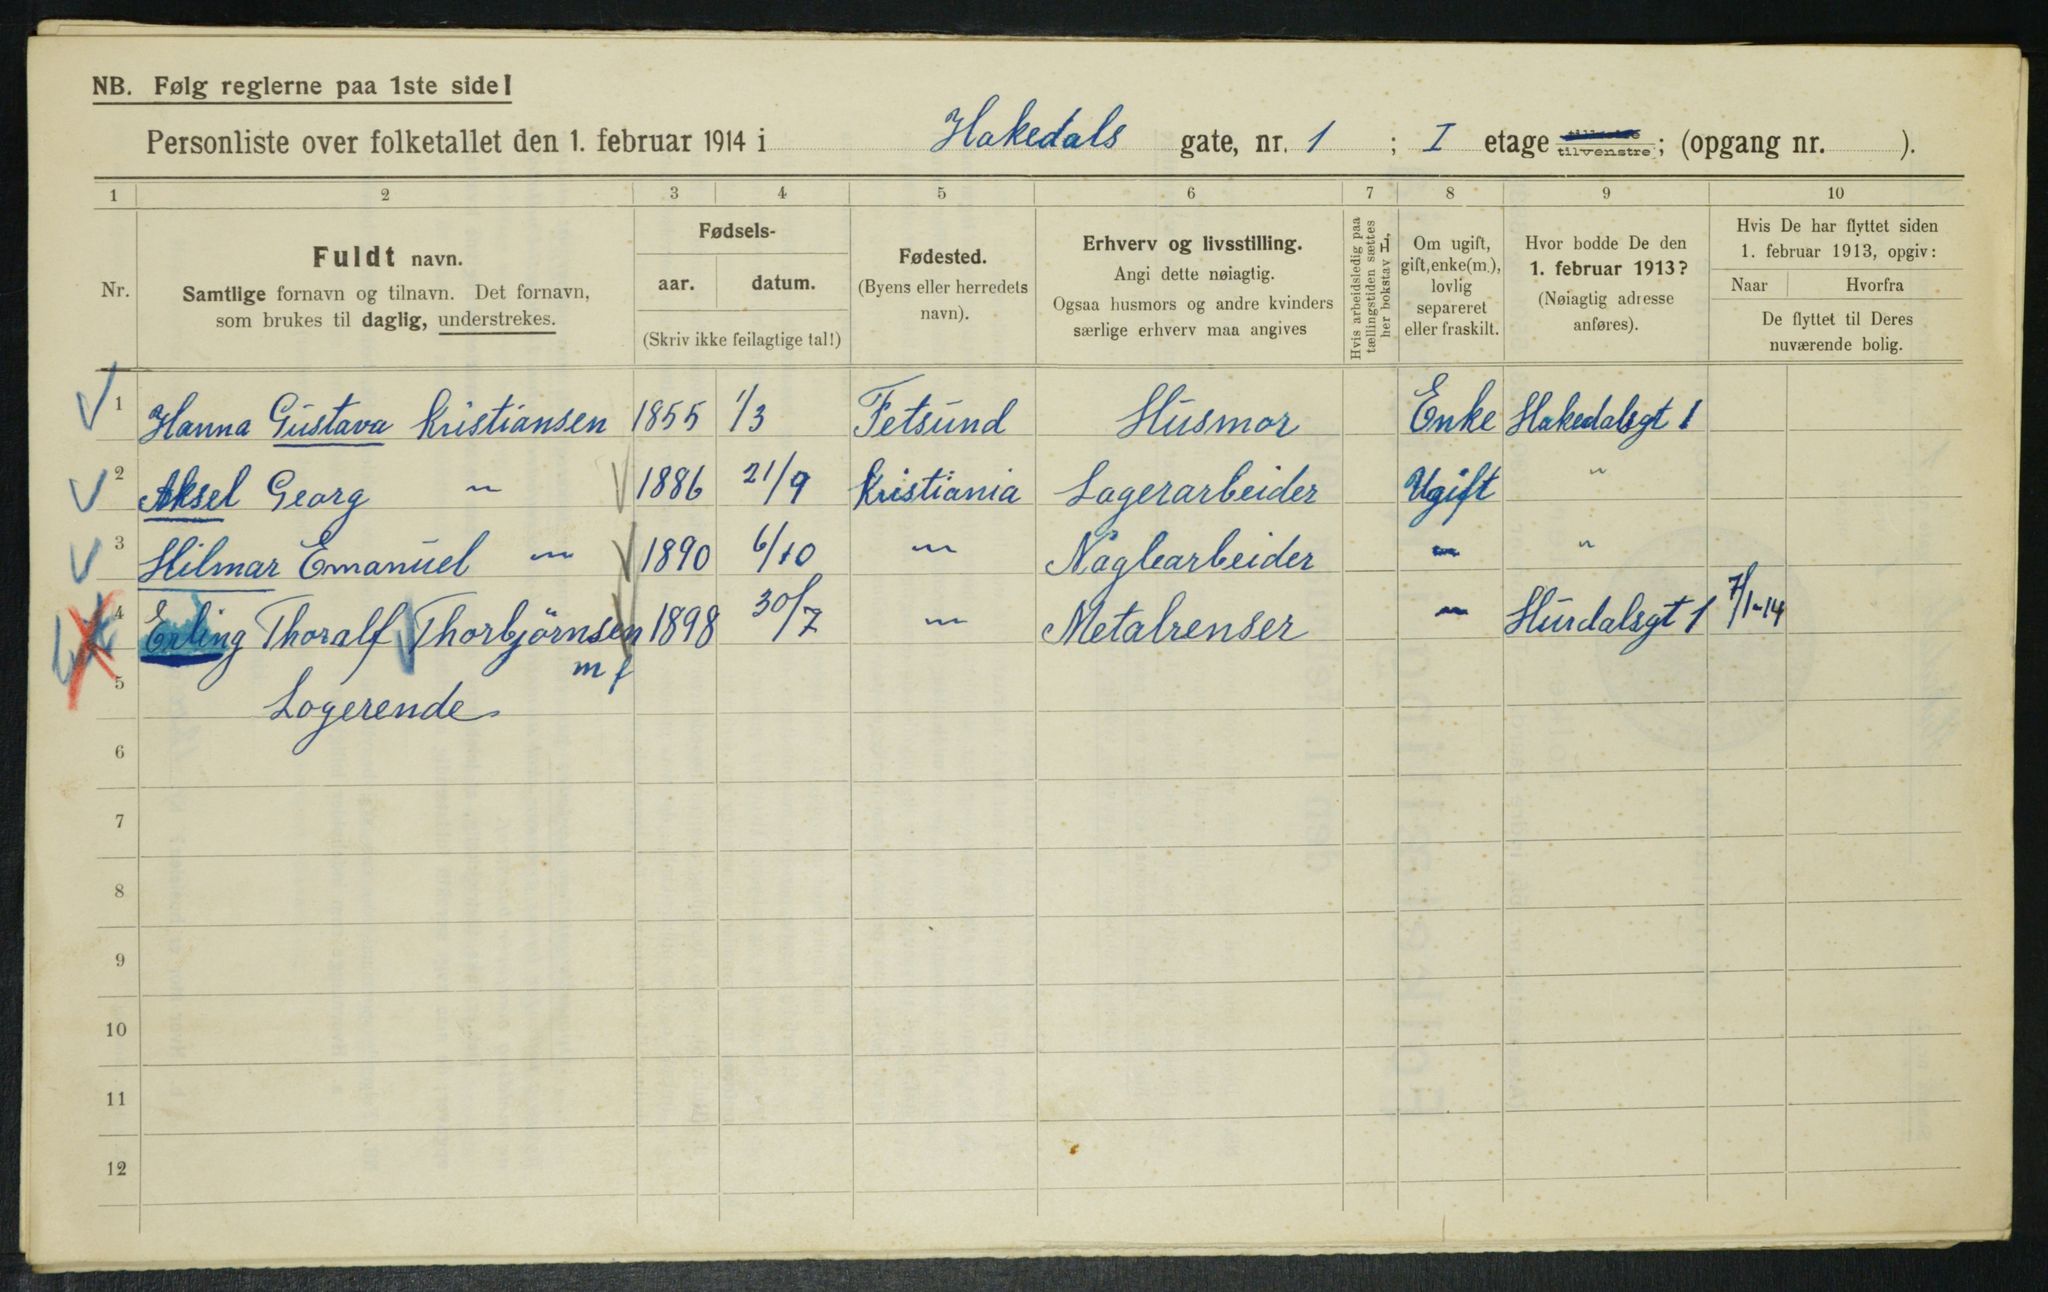 NB. Følg reglerne paa 1ste side!
Personliste over folketallet den 1. februar 1914 i Hakedals gate, nr. 1 ; I etage tilhøire tilvenstre; (opgang nr. ).
1 2 3 4 5 6 7 8 9 10
Nr.
Fuldt navn.
Samtlige fornavn og tilnavn. Det fornavn,
som brukes til daglig, understrekes.
Fødsels-
aar. datum.
(Skriv ikke feilagtige tal!)
Fødested.
(Byens eller herredets
navn).
Erhverv og livsstilling.
Angi dette nøiagtig.
Ogsaa husmors og andre kvinders
særlige erhverv maa angives
Hvis arbeidsledig paa
tællingstiden sættes
her bokstav H,
Om ugift,
gift, enke(m.),
lovlig
separeret
eller fraskilt.
Hvor bodde De den
1. februar 1913?
(Nøiagtig adresse
anføres).
Hvis De har flyttet siden
1. februar 1913, opgiv:
Naar Hvorfra
De flyttet til Deres
nuværende bolig.
1 Hanna Gustava Kristiansen 1855 1/3 Fetsund Husmor Enke Hakedalsgt 1
2 Aksel Georg " 1886 21/9 Kristiania Lagerarbeider Ugift "
3 Hilmar Emanuel " 1890 6/10 " Naglearbeider " "
4 Erling Thoralf Thorbjörnsen 1898 30/7 " Metalrenser " Hurdalsgt 1 7/1-14
m f
5 Logerende
6
7
8
9
10
11
12